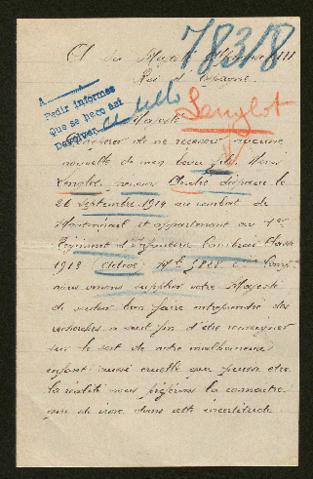 78318
A Sa Majesté Alphonse XIII
Roi d'Espagne.
A
Pedir informes
Que se pece así
Devolver
Senglot
Majesté
de ne recevoir aucune
nouvelle de mon beau fils, Mons
Senglot disparu le
26 Septembre 1914 au combat de
et appartenant au 1er
Régiment d'Infanterie Cambrai Classe
1912 active, Mle
nous venons supplier votre Majesté
de vouloir bien faire entreprendre des
recherches afin d'être renseigné
sur le sort de notre malheureux
enfant aussi cruelle que puisse être
la réalité nous préférons la connaître
que de vivre dans cette incertitude.